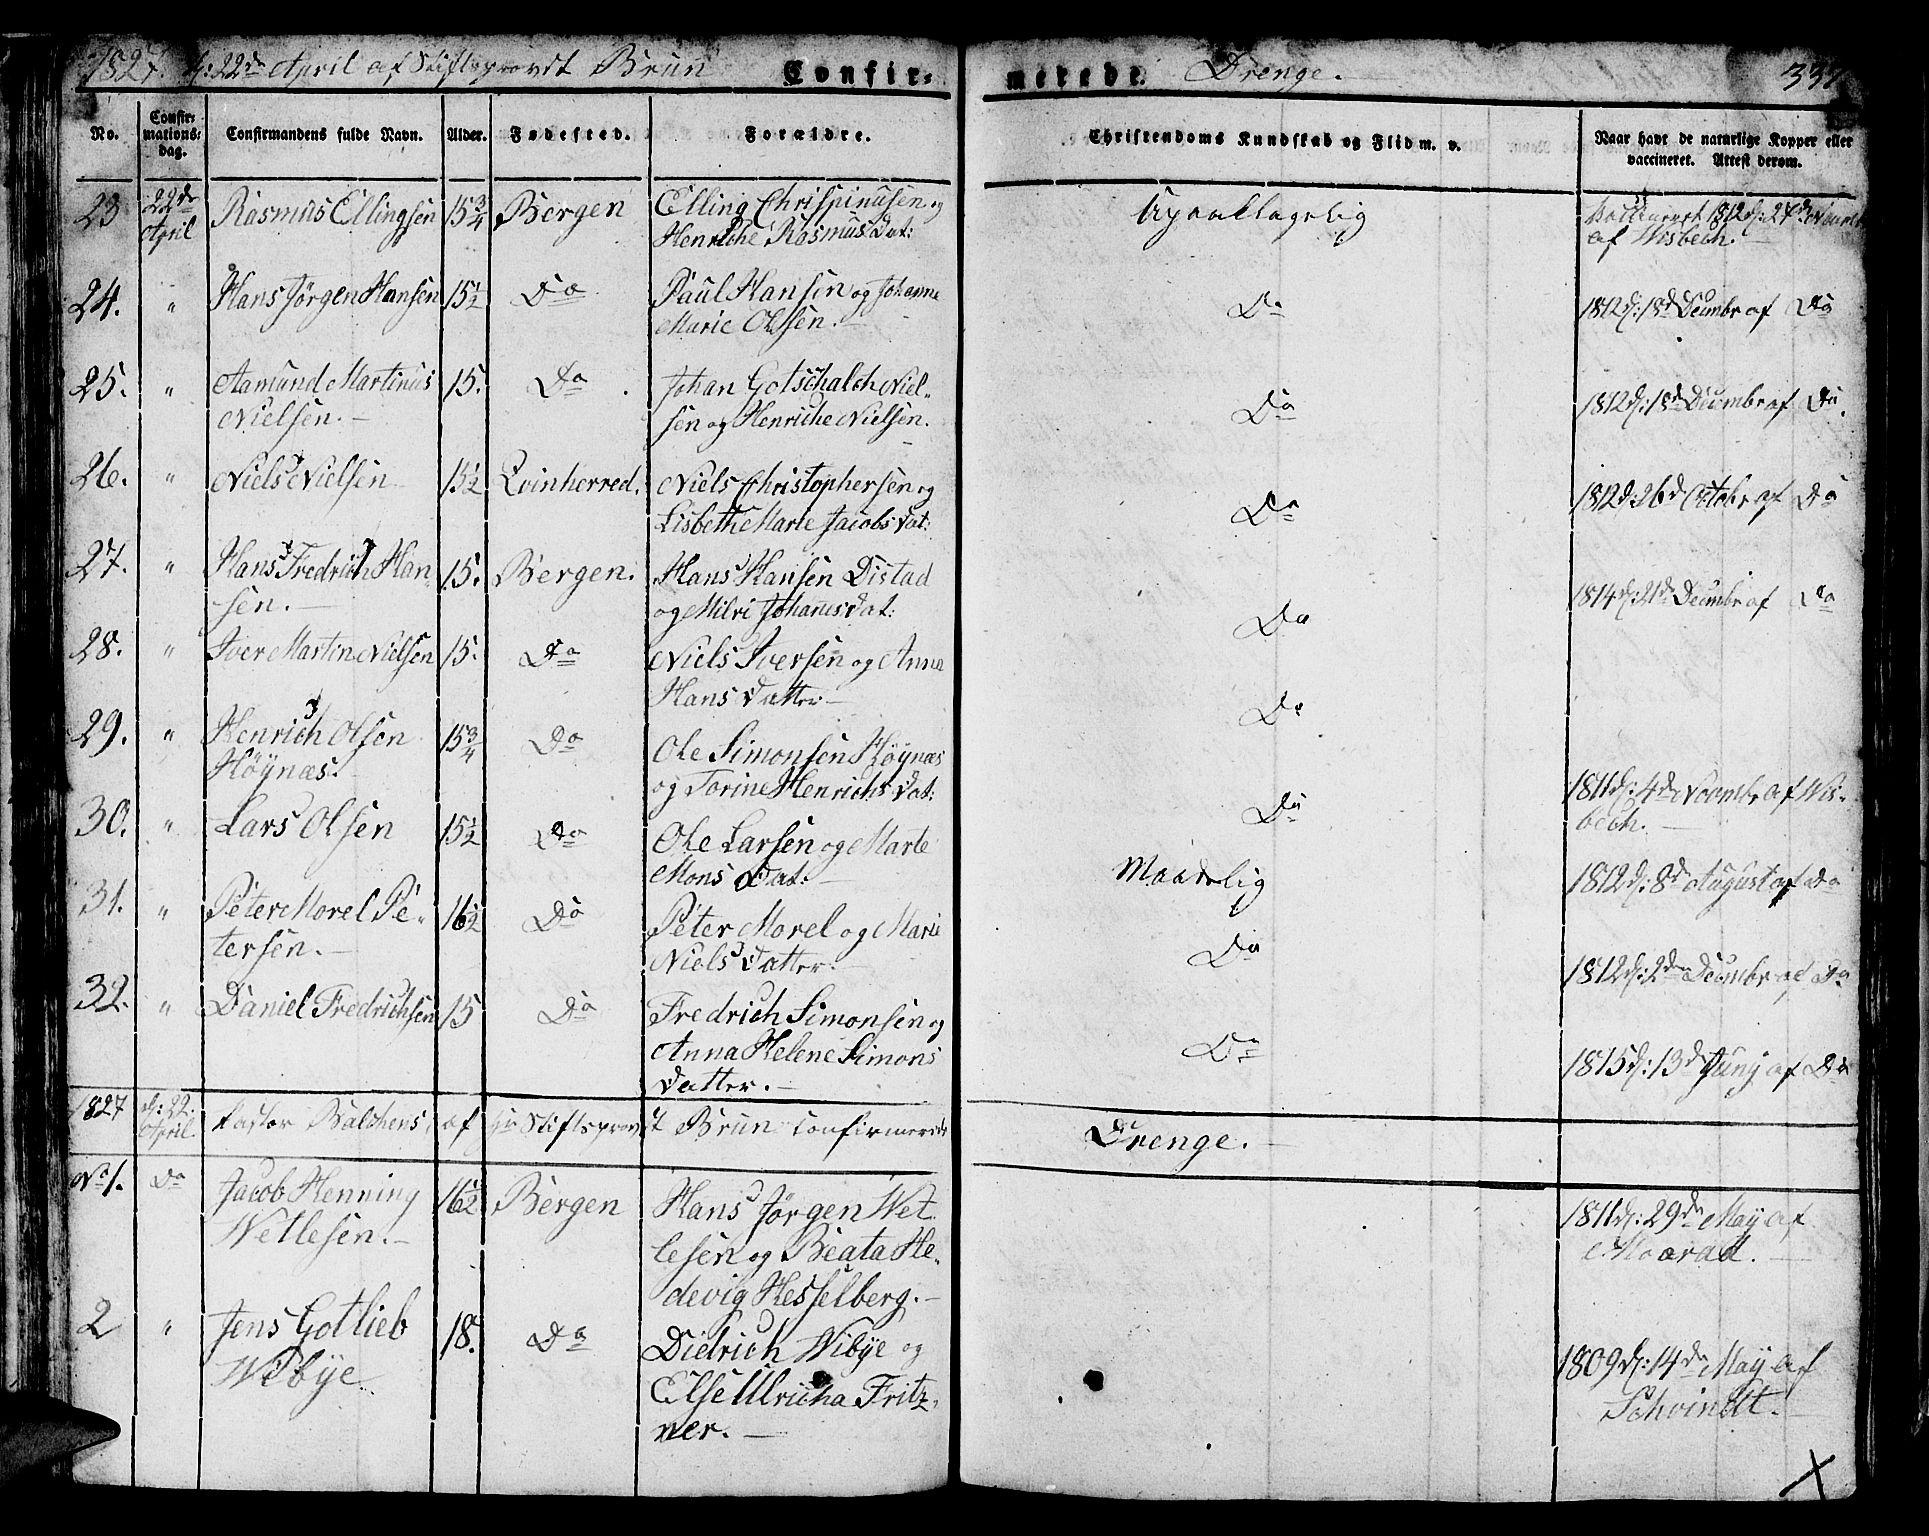 1827. d: 22de April af Stiftsprovst Brun Confir= merede. Drenge. 337
No. Confir= mations= dag. Confirmandens fulde Navn. Alder. Fødested. Forældre. Christendoms Kundskab og Flid m. v. Naar havt de naturlige Kopper eller vaccineret. Attest derom.
23 22de April Rasmus Ellingsen 15 3/4 Bergen Elling Chrispinusen og Henriche Rasmusdat: 1812 d: 27de
af Wisbech.
24. " Hans Jørgen Hansen 15 1/2 Do Paul Hansen og Johanne Do 1812 d: 18d Decembr af Do
Marie Olsen.
25. " Aamund Martinus 15. Do Johan Gotschalch Niel- Do 1812 d: 18d Decembr af Do
Nielsen. sen og Henriche Nielsen.
26. " Niels Nielsen 15 1/2 Qvinherred. Niels Christophersen og Do 1812 d: 26d Octobr af Do
Lisbeth Marte Jacobsdat:
27. " Hans Fredrich Han 15. Bergen. Hans Hansen Distad Do 1814 d: 21de Decembr af Do
sen. og Milri Johannesdat:
28. " Iver Martin Nielsen 15. Do Niels Iversen og Anna Do
Hans Datter
29. " Henrich Olsen 15 3/4 Do Ole Simonsen Høynæs Do 1811 d: 4de Novembr af Wis-
Høynæs. og Torine Henrichsdat: bech.
30. " Lars Olsen 15 1/2 Do Ole Larsen og Marte Maadelig 1812 d: 8de August af Do
Mons Dat:
31. " Peter Morel Pe- 16 1/2 Do Peter Morel og Marie Do 1812 d: 2de Decembr af Do
tersen. Niels Datter.
32. " Daniel Fredrichsen 15 Do Fredrich Simonsen og Do 1815 d: 13d Juny af Do
Anna Helene Simons
Datter.
1827 d: 22. April Pastor Balchens, af Hr Stiftsprovst Brun confirmerede Drenge.
No 1. Do Jacob Henning 16 1/2 Bergen Hans Jørgen Wet 1811 d: 29de May af
Wetlesen. lesen og Beata He-
devig Hesselberg.
2 " Jens Gotlieb 18. Do Dietrich Wibye og 1809 d: 14de May af
Wibye Else Ulricha Fritz- Schvindt.
ner.